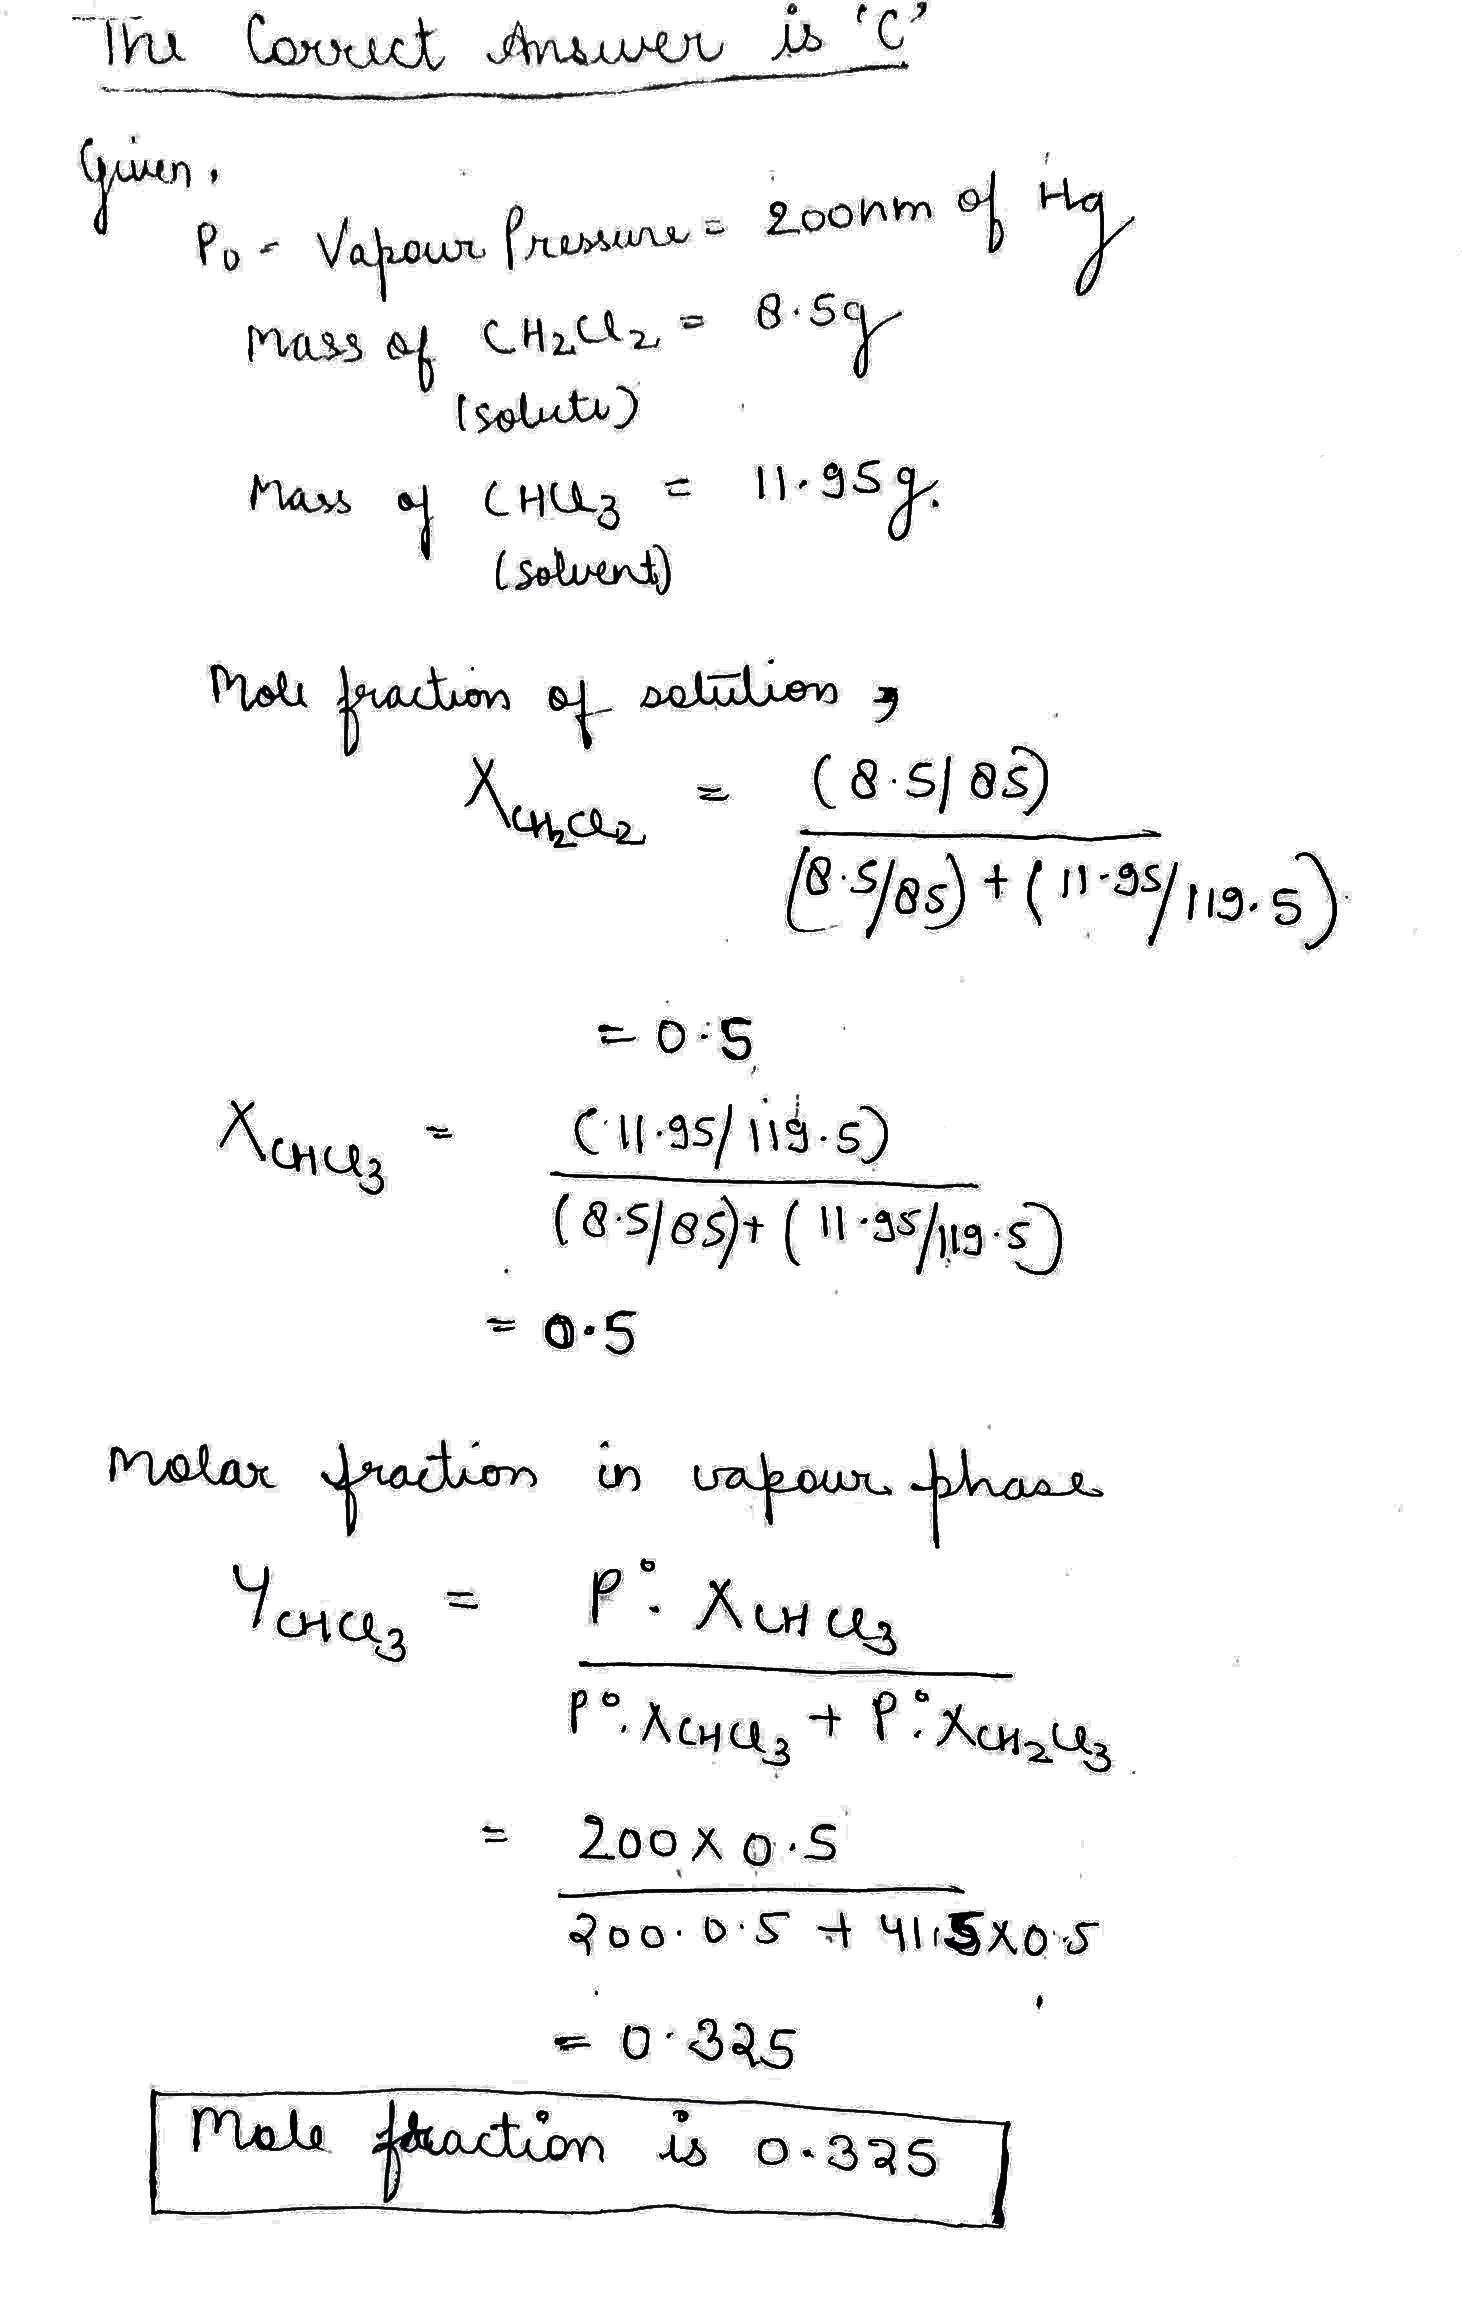 The Correct Answer is 'C'
Given,
P0 - Vapour Pressure = 200nm of Hg
Mass of CH2Cl2 = 8.5g
(solute)
Mass of CHCl3 = 11.95g.
(solvent)
Mole fraction of solution,
XCH2Cl2 = (8.5/85)
(8.5/85) + (11.95/119.5)
= 0.5
XCHCl3 = (11.95/119.5)
(8.5/85) + (11.95/119.5)
= 0.5
Molar fraction in vapour phase
YCHCl3 = P°. XCHCl3
P°. XCHCl3 + P°. XCH2Cl3
= 200 X 0.5
200. 0.5 + 415 X 0.5
= 0.325
Mole fraction is 0.325